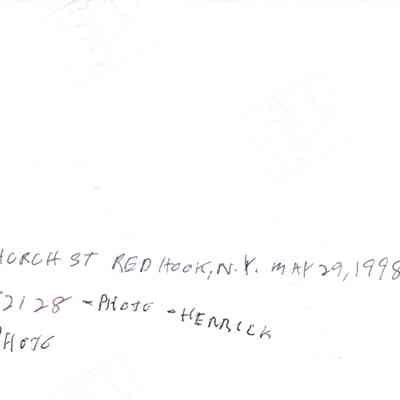 HURCH ST RED HOOK, N.Y. MAY 29, 1998
2128 - PHOTO - HERRICK
PHOTO